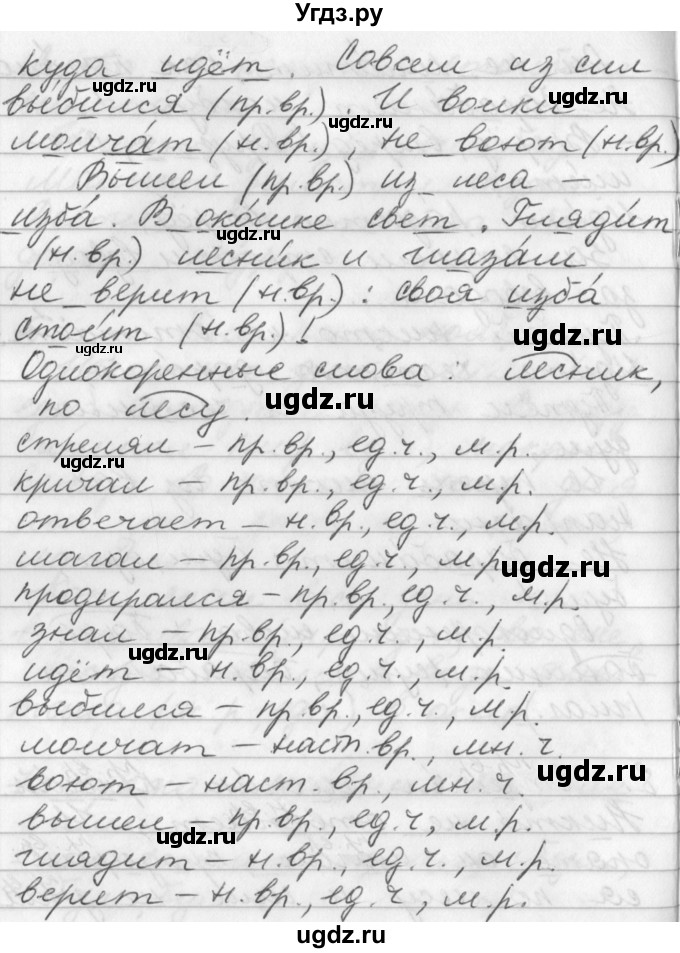 Угдз.ру
куда идёт. Совсем из сил
выбился (пр.вр.). И волки
молча́т (н.вр.), не воют (н.вр.)
Вышел (пр.вр.) из леса –
изба́. В око́шке свет. Гляди́т
(н.вр.) лесни́к и глаза́м
не верит (н.вр.): своя изба́
стои́т (н.вр.)!
Однокоренные слова: лесник,
по лесу.
стрелял – пр.вр., ед.ч., м.р.
кричал – пр.вр., ед.ч., м.р.
отвечает – н.вр., ед.ч., м.р.
шагал – пр.вр., ед.ч., м.р.
продирался – пр.вр., ед.ч., м.р.
знал – пр.вр., ед.ч., м.р.
идёт – н.вр., ед.ч., м.р.
выбился – пр.вр., ед.ч., м.р.
молчат – наст.вр., мн.ч.
воют – наст.вр., мн.ч.
вышел – пр.вр., ед.ч., м.р.
глядит – н.вр., ед.ч., м.р.
верит – н.вр., ед.ч., м.р.
ugdz.ru
ugdz.ru
ugdz.ru
ugdz.ru
ugdz.ru
ugdz.ru
ugdz.ru
ugdz.ru
ugdz.ru
ugdz.ru
ugdz.ru
ugdz.ru
ugdz.ru